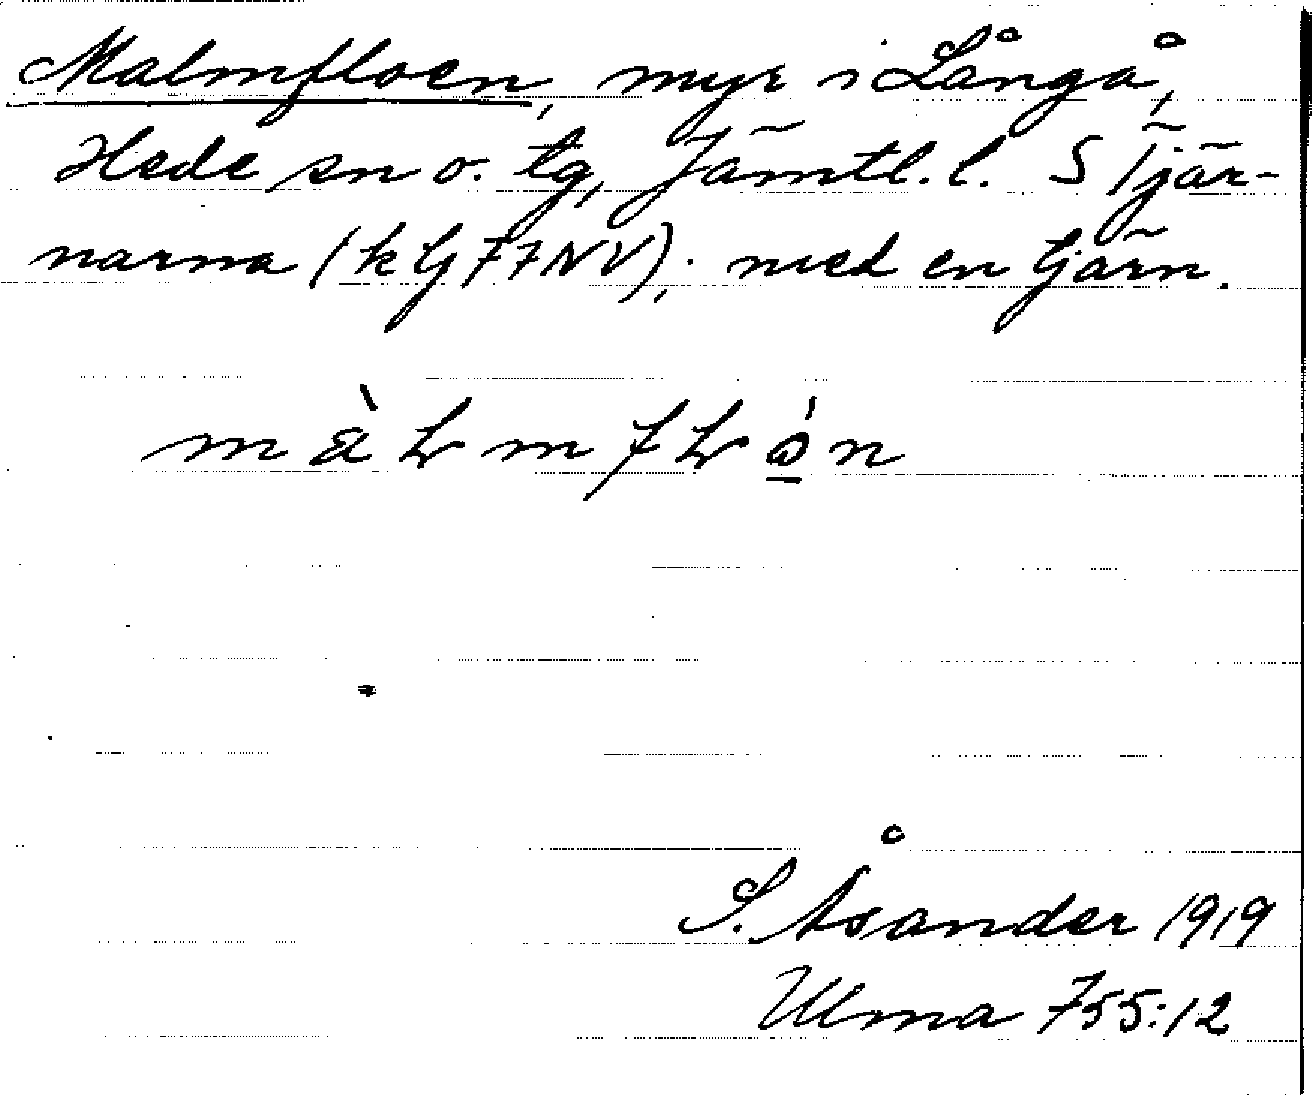 Malmfloen, myr i Långå,
Hede sn o. tg, Jämtl. l. S Tjär-
narna (k bj 77NV); med en tjärn.
màⱢmfⱢó̲n
S. Åsander 1919
Ulma 755:12